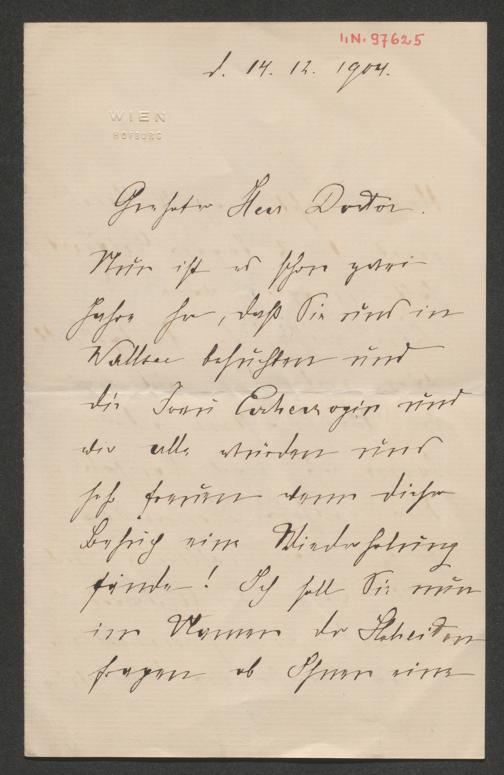 I.N. 97625
d. 14. 12. 1904.
WIEN
HOFBURG
Geehrter Herr Doctor.
Nun ist es schon zwei
Jahre her, daß Sie uns in
Wallsee besuchten und
die Frau Erzherzogin und
wir alle würden uns
sehr freuen wenn dieser
Besuch eine Wiederholung
fände! Ich soll Sie nun
im Namen der Hoheiten
fragen ob Ihnen eine